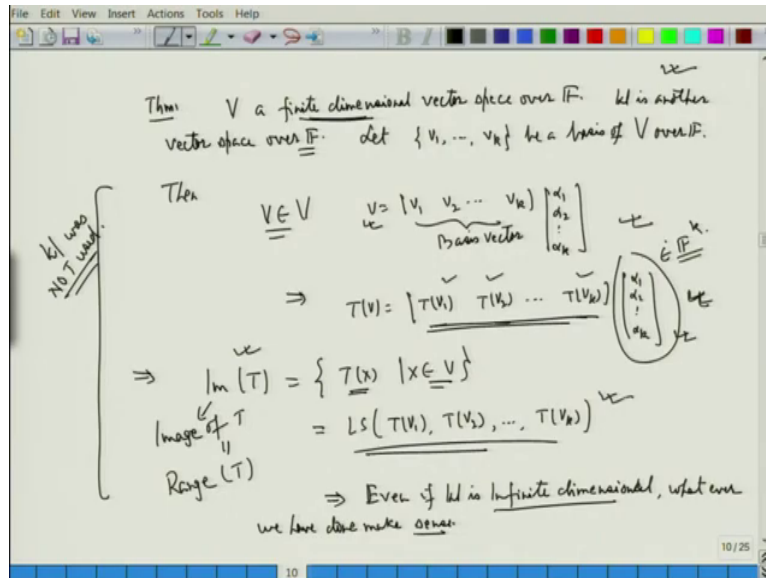 File Edit View Insert Actions Tools Help
Thm: V a finite dimensional vector space over 𝔽. W is another
vector space over 𝔽. Let {v₁, ..., vₖ} be a basis of V over 𝔽.
Then
V ∈ V v = [v₁ v₂ ... vₖ] [α₁ α₂ ⋮ αₖ]
Basis vector
∈ 𝔽ᵏ.
W was
NOT used.
⇒ T(v) = [T(v₁) T(v₂) ... T(vₖ)] [α₁ α₂ ⋮ αₖ]
⇒ Im(T) = { T(x) | x ∈ V }
Image of T = LS(T(v₁), T(v₂), ..., T(vₖ))
=
Range (T)
⇒ Even if W is Infinite dimensional, what ever
we have done make sense.
10/25
10